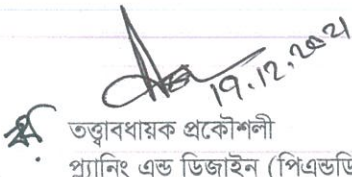 19.12.2021
তত্ত্বাবধায়ক প্রকৌশলী
প্ল্যানিং এন্ড ডিজাইন (পিএন্ডডি